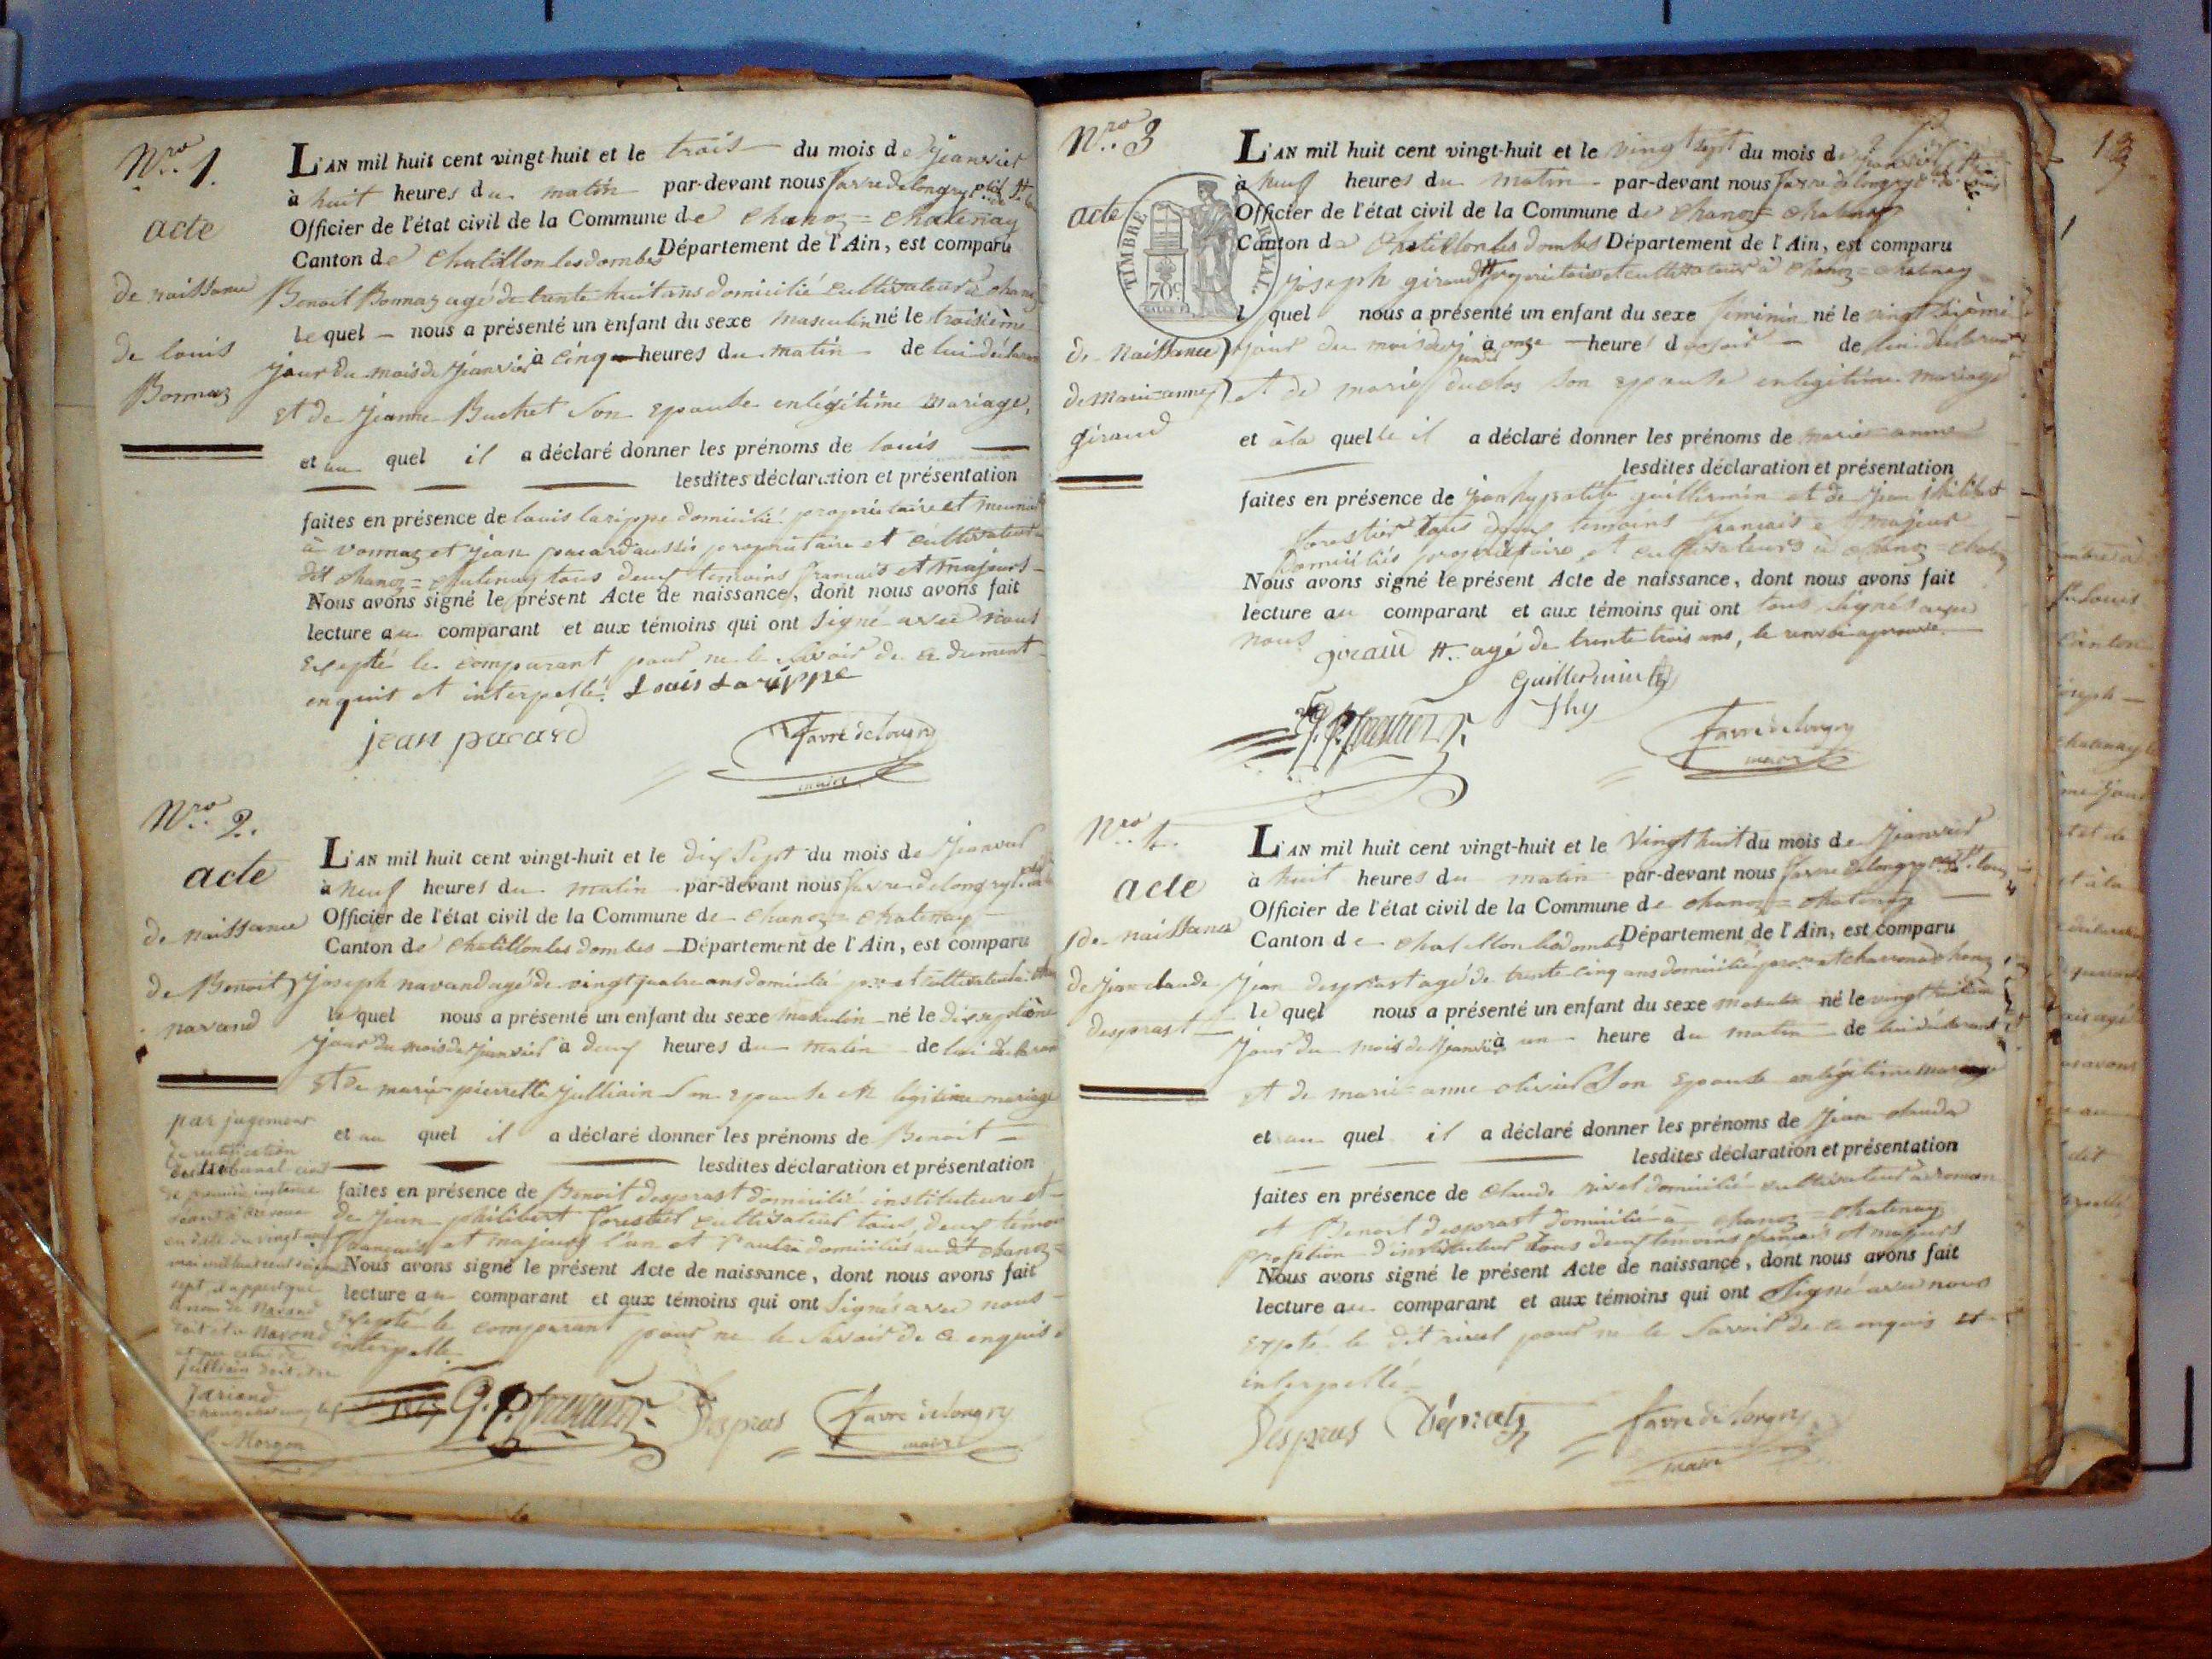 Nro. 1.
acte
de naissance
de louis
Bonnaz
L'AN mil huit cent vingt-huit et le trois du mois de Janvier
à huit heures du matin par-devant nous favre delongry
Officier de l'état civil de la Commune de Chanoz = Chatenay
Canton de Chatillon les dombes Département de l'Ain, est comparu
Benoit Bonnaz agé de trente huit ans domicilié cultivateur à chanoz
le quel nous a présenté un enfant du sexe masculin né le troisième
jour du mois de Janvier à cinq heures du matin de lui déclarant
et de Jeanne Buchet son epouse en légitime mariage,
et au quel il a déclaré donner les prénoms de louis
lesdites déclaration et présentation
faites en présence de louis larippe domicilié propriétaire et meunier
à vonnaz et Jean pacard aussi propriétaire et cultivateur
dit chanoz = chatenay tous deux temoins français et majeurs
Nous avons signé le présent Acte de naissance, dont nous avons fait
lecture au comparant et aux témoins qui ont signé avec nous
excepté le comparant pour ne le savoir de ce dument
enquit et interpellé. Louis Larippe
jean pacard
favre delongry
maire
Nro. 2.
acte
de naissance
de Benoit
navand
L'AN mil huit cent vingt-huit et le dix sept du mois de Janvier
à neuf heures du matin par-devant nous favre delongry
Officier de l'état civil de la Commune de chanoz = chatenay
Canton de Chatillon les dombes Département de l'Ain, est comparu
Joseph navand agé de vingt quatre ans domicilié et cultivateur à
le quel nous a présenté un enfant du sexe masculin né le dix septième
jour du mois de Janvier à deux heures du matin de lui déclarant
et de marie pierrette Julliain son epouse en légitime mariage
et au quel il a déclaré donner les prénoms de Benoit
lesdites déclaration et présentation
faites en présence de Benoit desprast domicilié instituteur et
de Jean philibert forestier cultivateur tous deux témoins
français et majeurs l'un et l'autre domiciliés au dit chanoz =
Nous avons signé le présent Acte de naissance, dont nous avons fait
lecture au comparant et aux témoins qui ont signés avec nous
excepté le comparant pour ne le savoir de ce enquis
interpellé
Despras favre delongry
maire
par jugement
de rectification
du tribunal civil
de première instance
séant à trevoux
en date du vingt neuf
mai mil huit cent soixante
sept, il appert que
le nom de Navand
doit être Narond
et que celui de
Julliain doit être
Jariand
Morgon
13
Nro. 3
acte
TIMBRE ROYAL.
70c
de Naissance
de Marie = anne
giraud
L'AN mil huit cent vingt-huit et le vingt sept du mois de janvier
à neuf heures du matin par-devant nous favre delongry
Officier de l'état civil de la Commune de chanoz = chatenay
Canton de Chatillon les dombes Département de l'Ain, est comparu
joseph giraud propriétaire et cultivateur à Chanoz = chatenay
l quel nous a présenté un enfant du sexe féminin né le vingt sixième
jour du mois de à onze heures du soir de lui déclarant
et de marie duclos son epouse en légitime mariage
et à la quelle il a déclaré donner les prénoms de marie = anne
lesdites déclaration et présentation
faites en présence de jean hypolite guillermin et de Jean philibert
forestier tous deux témoins français et majeur
domiciliés propriétaire et cultivateurs à chanoz = chatenay
Nous avons signé le présent Acte de naissance, dont nous avons fait
lecture au comparant et aux témoins qui ont tous signés avec
nous
giraud #. agé de trente trois ans, le renvoi aprouvé.
Guillermin
Jhy
favre delongry
maire
Nro. 4.
acte
de naissance
de Jean claude
desprast
L'AN mil huit cent vingt-huit et le Vingt huit du mois de Janvier
à huit heures du matin par-devant nous favre delongry
Officier de l'état civil de la Commune de chanoz = chatenay
Canton de chatillon les dombes Département de l'Ain, est comparu
Jean desprast agé de trente cinq ans domicilié et charron à chanoz
le quel nous a présenté un enfant du sexe masculin né le vingt huitième
jour du mois de Janvier à une heure du matin de lui déclarant
et de marie = anne olivier son epouse en légitime mariage
et au quel il a déclaré donner les prénoms de Jean claude
lesdites déclaration et présentation
faites en présence de Claude rivel domicilié cultivateur à roman
et Benoit desprast domicilié à chanoz = chatenay
profession d'instituteur tous deux témoins français et majeurs
Nous avons signé le présent Acte de naissance, dont nous avons fait
lecture au comparant et aux témoins qui ont signé avec nous
excepté le dit rivel pour ne le savoir de ce enquis et
interpellé
Despras Déprats favre delongry
maire